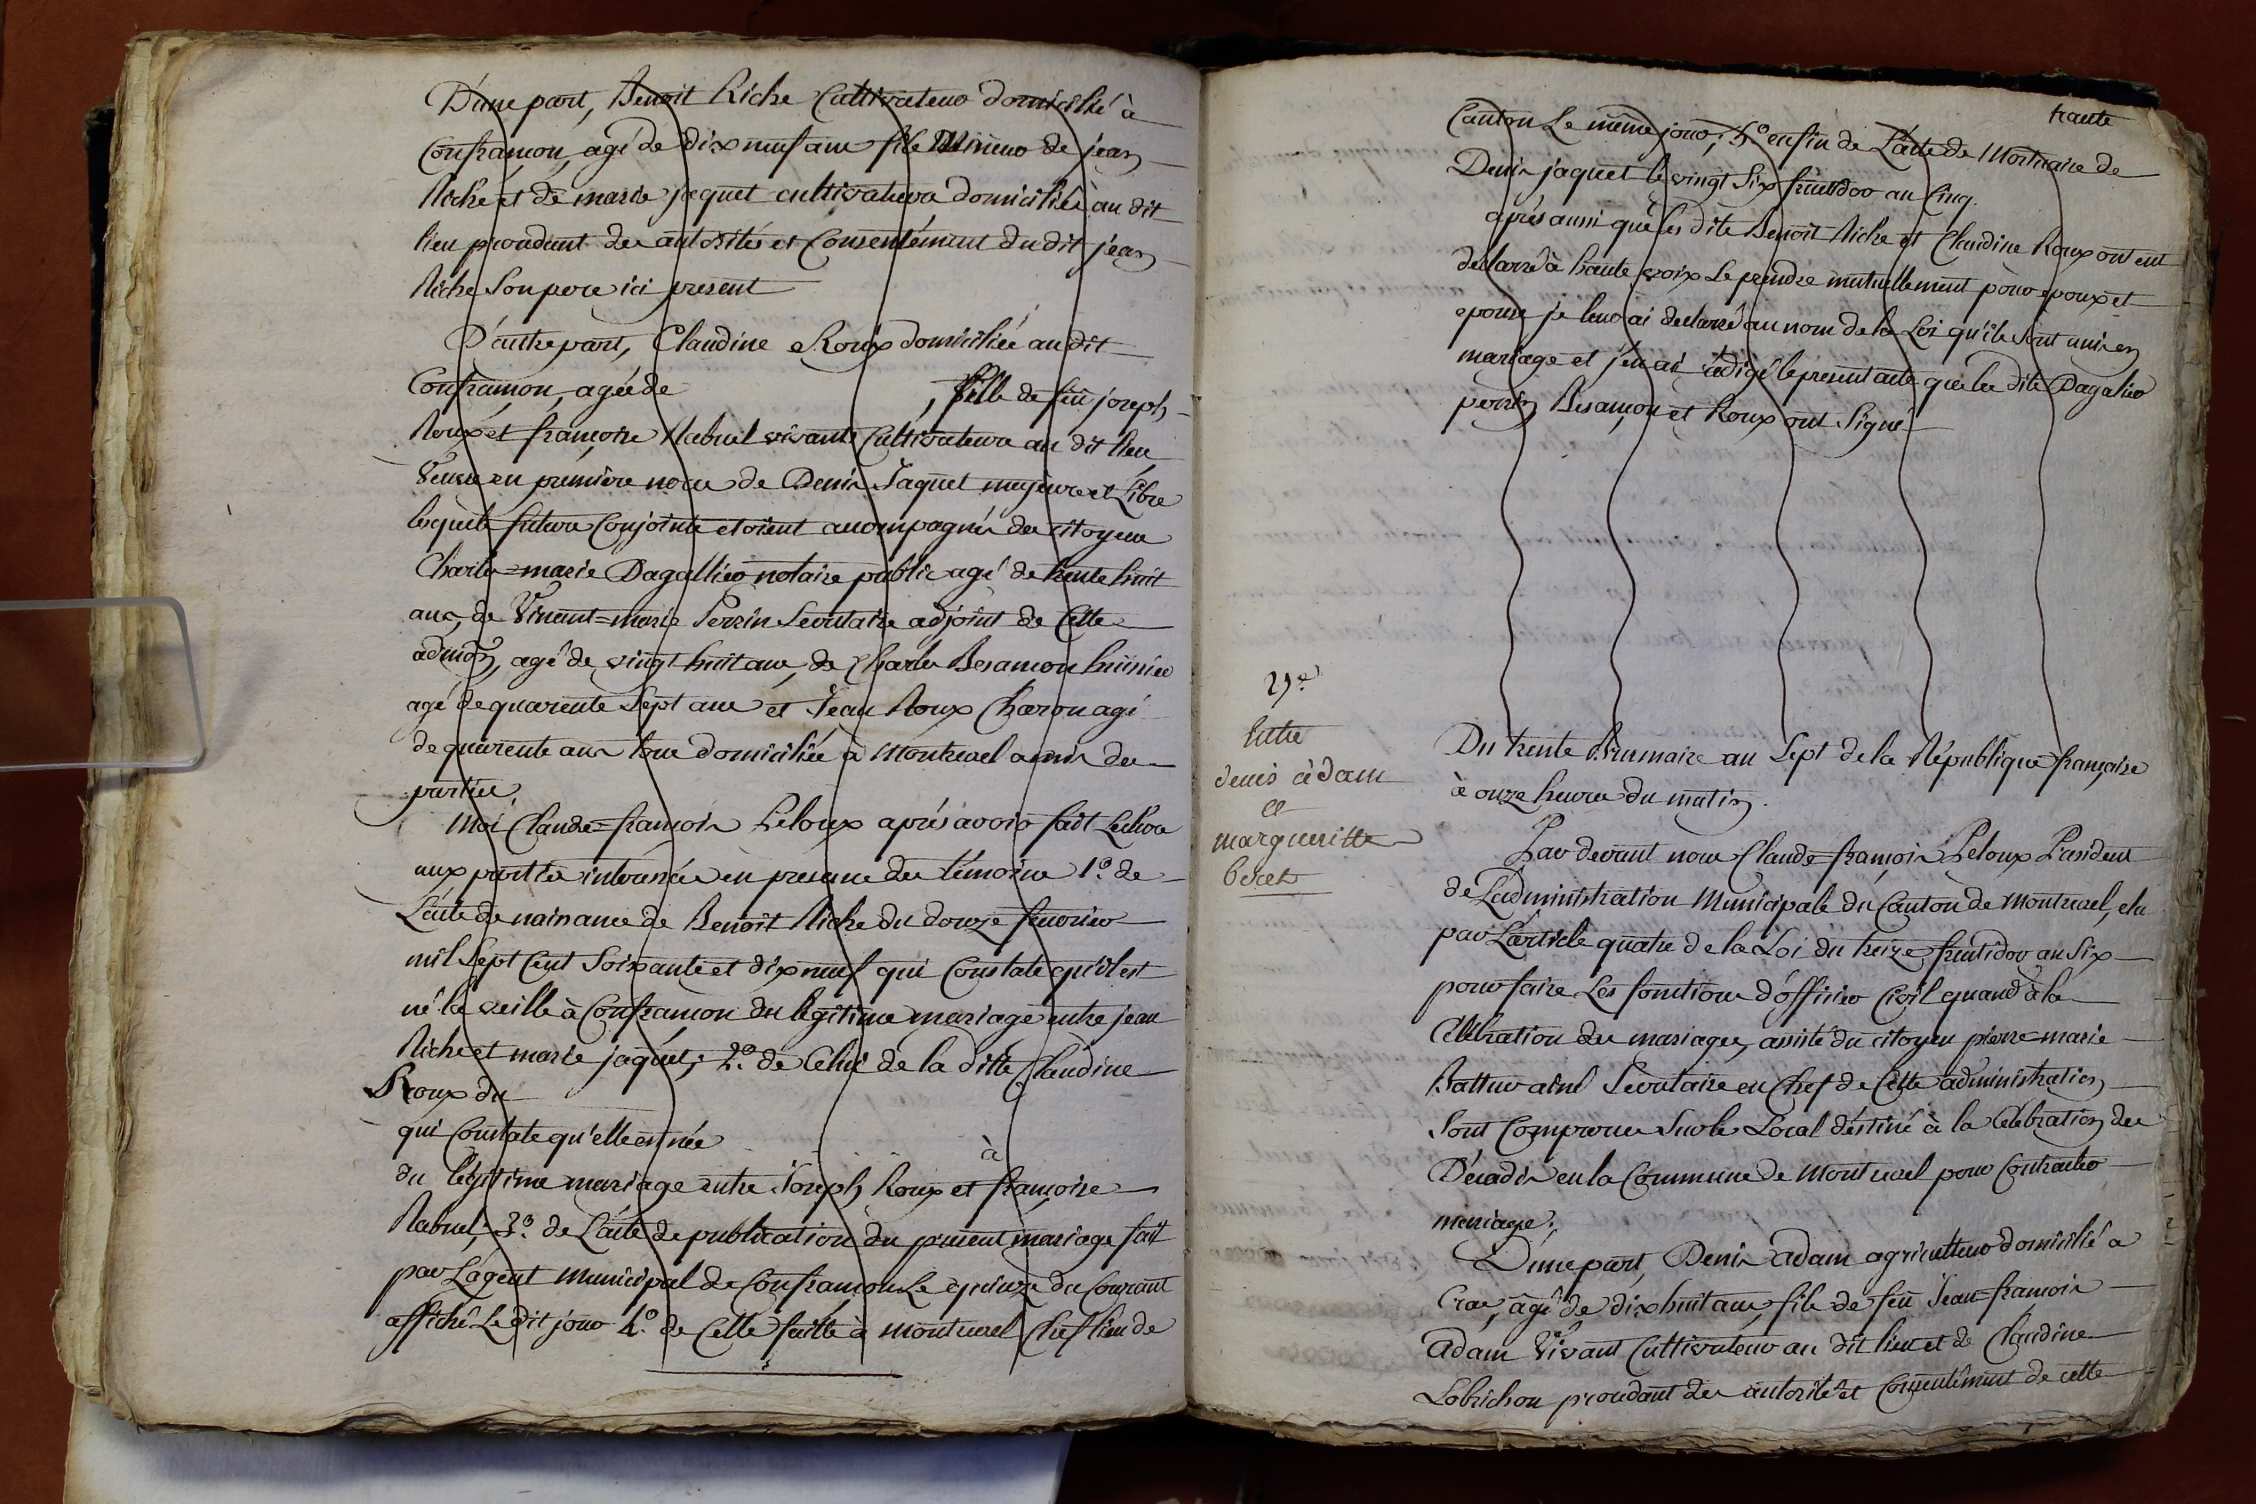 D'une part, Benoit Riche Cultivateur domicilié à
Confrançon, agé de dix neuf ans fils Mineur de jean
Riche et de marie jaquet cultivateurs domiciliés au dit
lieu procedant des autorités et Consentément du dit jean
Riche Son pere ici present
D'autre part, Claudine Roux domiciliée au dit
Confrançon, agée de , fille de feu joseph
Roux et françoise Nabuel vivants Cultivateurs au dit lieu
Veuve en première noce de Denis Jaquet majeure et Libre
lesquels futurs Conjoints etoient accompagnés des citoyens
Charles=marie Dagallier notaire public agé de trente huit
ans, de Vincent=marie Perrin Secrétaire adjoint de Cette
admon, agé de vingt huit ans, de Charles Besançon huissier
agé de quarente Sept ans et Jean Roux Charon agé
de quarente ans tous domiciliés à Montrevel amis des
parties
Moi Claude=françois Peloux aprés avoir fait Lecture
aux parties intéressées en presence des témoins 1.º de
L'acte de naissance de Benoit Riche du douze fevrier
mil Sept Cent Soixante et dix neuf qui Constate qu'il est
né la veille à Confrançon du légitime mariage entre jean
Riche et marie jaquet, 2.º de Celui de la ditte Claudine
Roux du
qui Constate qu'elle est née à
du légitime mariage entre Joseph Roux et françoise
Nabuel, 3.º de L'acte de publication du present mariage fait
par L'agent Municipal de Confrançon Le quinze du Courant
affiché Le dit jour 4.º de Celle faitte à Montrevel Chef lieu de
trante
Canton Le même jour, 5.º enfin de L'acte de Mortuaire de
Denis jaquet le vingt Six fructidor an Cinq.
aprés aussi que les dits Benoit Riche et Claudine Roux ont eut
déclarré à haute voix Se prendre mutuellement pour epoux et
epouse je leur ai declarré au nom de la Loi qu'ils Sont unis en
mariage et j'en ai rédigé le present acte que les dits Dagalier
perrin Besançon et Roux ont Signé
29.e
Entre
denis adam
et
margueritte
beret
Du trente Brumaire an Sept de la République française
à onze heures du matin.
Par devant nous Claude=françois Peloux President
de L'administration Municipale du Canton de Montrevel, elu
par L'article quatre de la Loi du treize fructidor an Six
pour faire Les fonctions d'officier Civil quand à la
Célébration des mariages, assisté du citoyen pierre=marie
Battur ainé Secrétaire en Chef de Cette administration
Sont Comparus Sur le Local déstiné à la Célébration des
Décadis en la Commune de Montrevel pour Contracter
mariage.
D'une part, Denis adam agriculteur domicilié a
Cras, âgé de dix huit ans, fils de feu Jean=françois
adam Vivant Cultivateur au dit lieu et de Claudine
Lobrichon procedant des autorité et Consentément de cette